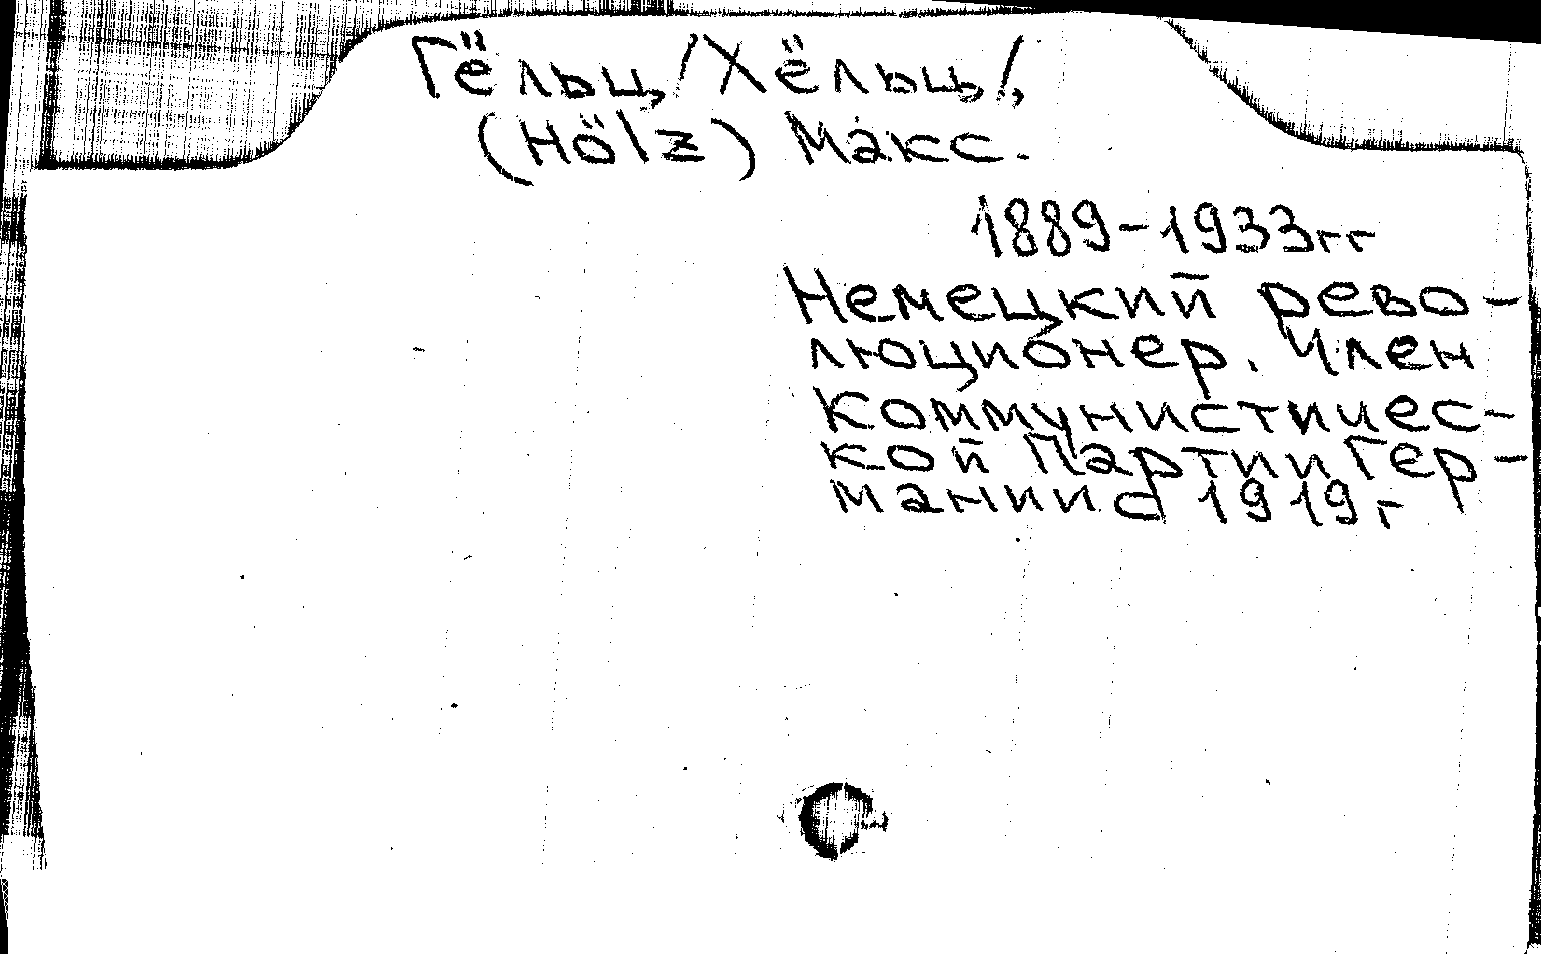 Гёльц/Хёльц/,
(Hölz) Макс.
1889-1933гг
Немецкий рево-
люционер. Член
коммунистичес-
кой Партии Гер-
мании с 1919г